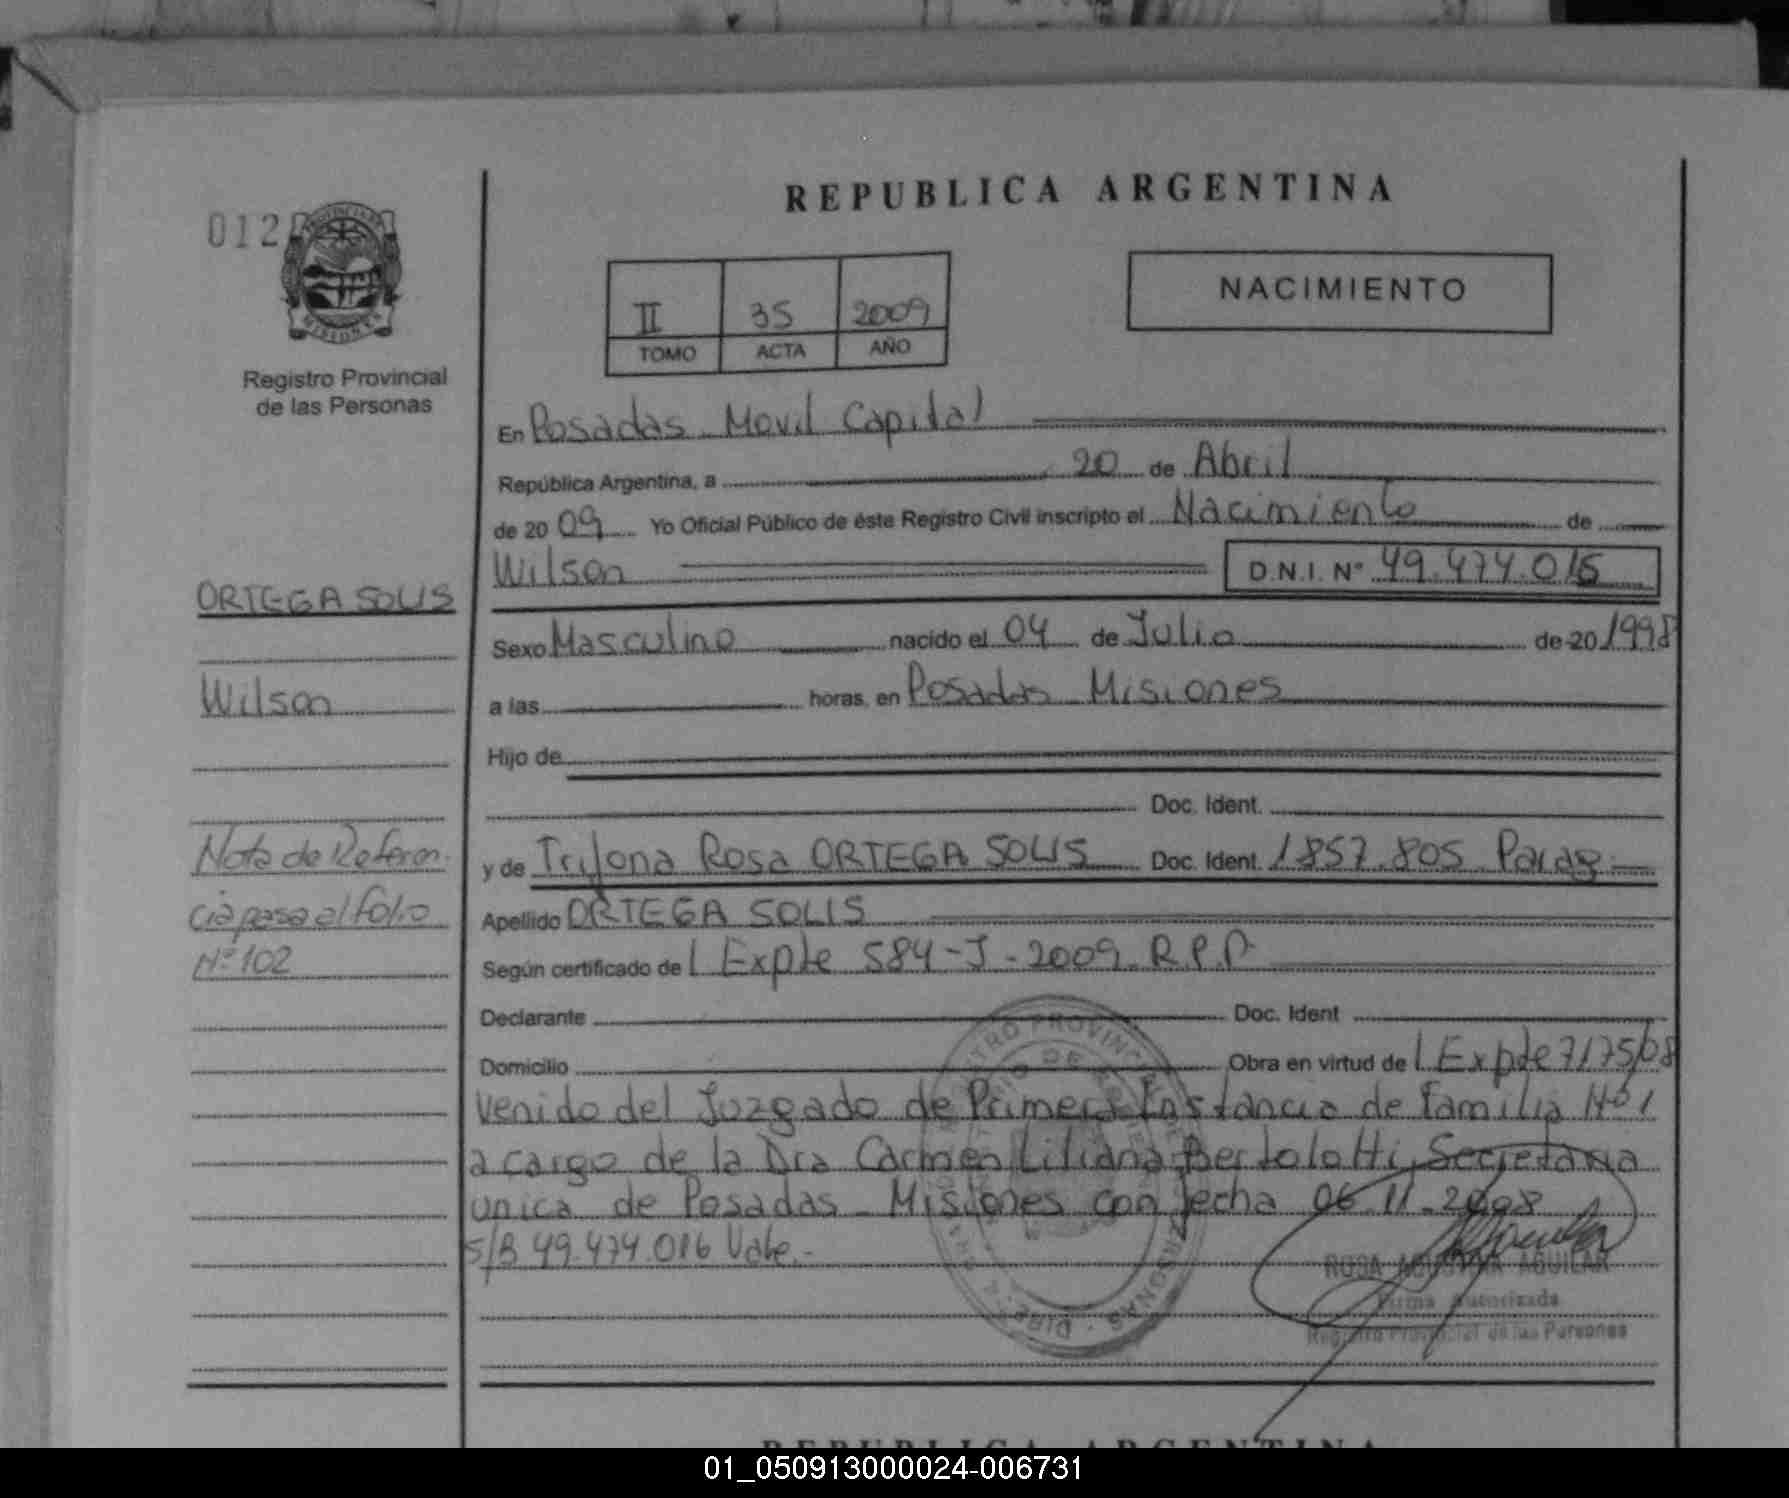 REPUBLICA ARGENTINA
012
PROVINCIA DE
MISIONES
Registro Provincial
de las Personas
II 35 2009
TOMO ACTA AÑO
NACIMIENTO
En Posadas Movil Capital
República Argentina, a 20 de Abril
de 20 09 Yo Oficial Público de éste Registro Civil inscripto el Nacimiento de
Wilson D.N.I. N° 49.474.016
ORTEGA SOLIS
Sexo Masculino nacido el 04 de Julio de 20 1998
Wilson
a las horas, en Posadas Misiones
Hijo de
Doc. Ident.
Nota de Referen-
cia pasa al folio
Nº 102
y de Trifona Rosa ORTEGA SOLIS Doc. Ident. 1857.805 Parag.
Apellido ORTEGA SOLIS
Según certificado de l Expte 584-J-2009. R.P.P.
Declarante Doc. Ident
Domicilio Obra en virtud de l Expte 7175/08
venido del Juzgado de Primera Instancia de Familia Nº 1
a cargo de la Dra Carmen Liliana Bertolotti, Secretaria
unica de Posadas - Misiones con fecha 06.11.2008
S/B 49.474.016 Vale.-
ROSA AGUILAR
Firma Autorizada
Registro Provincial de las Personas
REPUBLICA ARGENTINA
01_050913000024-006731